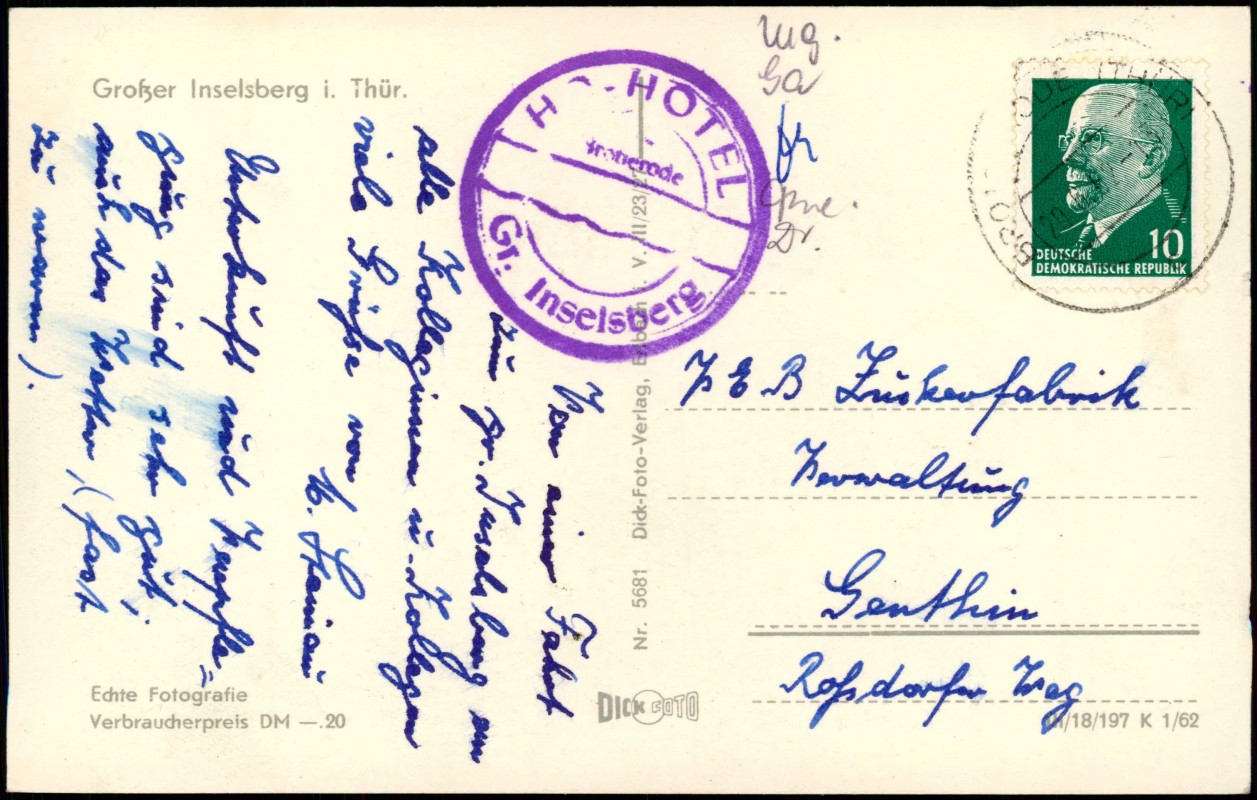 Großer Inselsberg i. Thür.
Von einer Fahrt
zum gr. Inselsberg an
alle Kolleginnen u. Kollegen
viele Grüße von
H.
Unterkunft und Verpfle=
gung sind sehr gut,
auch das Wetter, (fast
zu warm).
Echte Fotografie
Verbraucherpreis DM —.20
HOTEL
Gr. Inselsberg
Nr. 5681 Dick-Foto-Verlag,
DICK FOTO
Dr.
(THÜR)
BROT
10
DEUTSCHE
DEMOKRATISCHE REPUBLIK
VEB Zuckerfabrik
Verwaltung
Genthin
Roßdorfer Weg
/18/197 K 1/62